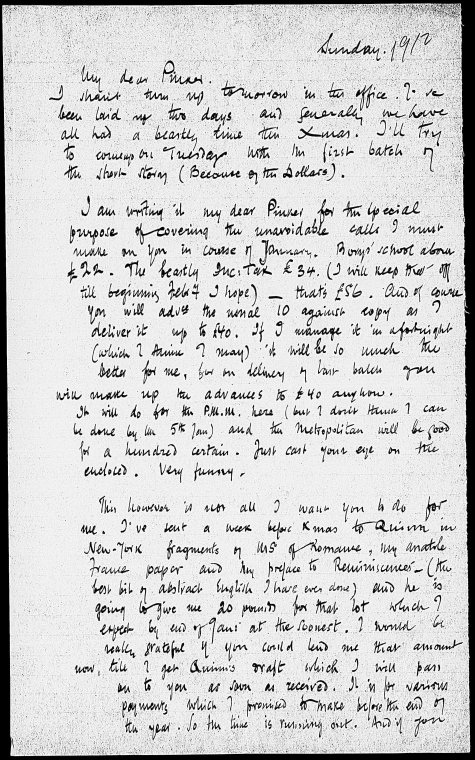 Sunday. 1912
My dear Pinker.
I shan't turn up tomorrow in the office. I've
been laid up two days and generally we have
all had a beastly time this Xmas. I'll try
to come up on Tuesday with the first batch of
the short story (Because of the Dollars).
I am writing it my dear Pinker for the special
purpose of covering the unavoidable calls I must
make on you in course of January. Borys' school about
£22. The beastly Inc: Tax £34. (I will keep that off
till beginning Febr I hope) — that's £56. And of course
you will advce the usual 10 against copy as I
deliver it up to £40. If I manage it in a fortnight
(which I think I may) it will be so much the
better for me, but on delivery of last batch you
will make up the advances to £40 anyhow.
It will do for the P.M.M. here (but I don't think I can
be done by the 5th Jan) and the Metropolitan will be good
for a hundred certain. Just cast your eye on the
enclosed. Very funny.
This however is not all I want you to do for
me. I've sent a week before Xmas to Quinn in
New-York fragments of MS of Romance, my Anatole
France paper and my preface to Reminiscences — (the
best bit of abstract English I have ever done) and he is
going to give me 20 pounds for that lot which I
expect by end of Jany at the soonest. I would be
really grateful if you could lend me that amount
now, till I get Quinn's draft which I will pass
on to you as soon as received. It is for various
payments which I promised to make before the end of
the year. So the time is running out. And if you